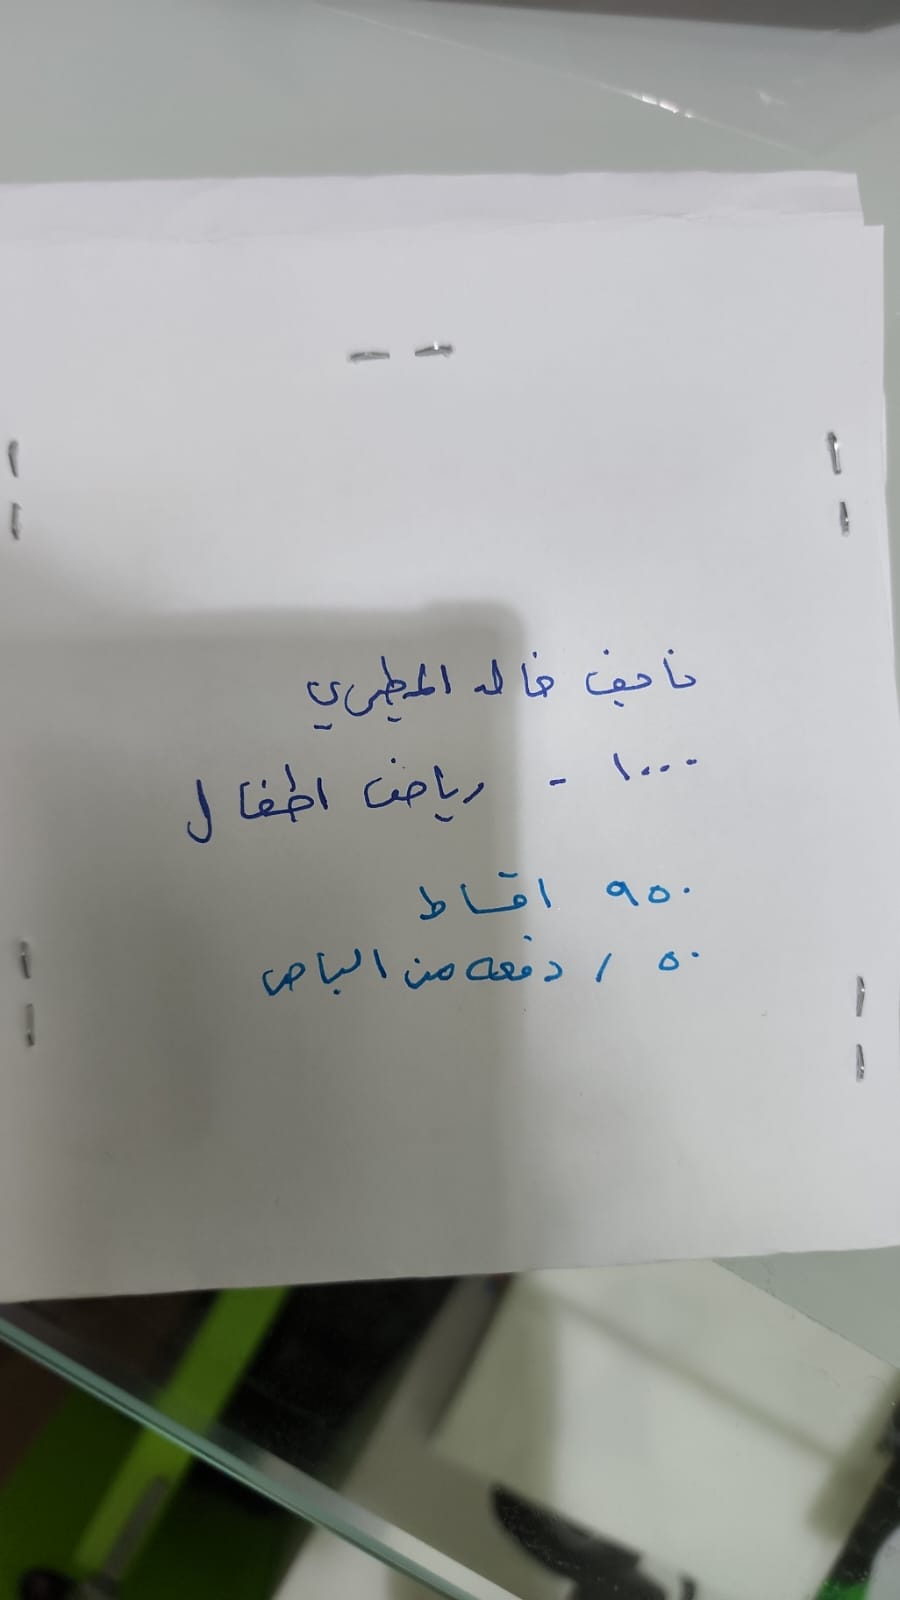 نايف خالد المطيري
١٠٠٠ - رياض اطفال
٩٥٠ اقساط
٥٠ / دفعه من الباص